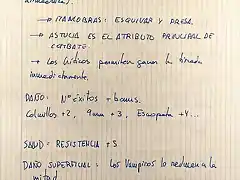 → MANIOBRAS: ESQUIVAR Y PRESA.
→ ASTUCIA ES EL ATRIBUTO PRINCIPAL DE
COMBATE.
→ Los críticos permiten ganar la tirada
inmediatamente.
DAÑO: Nº éxitos + bonus.
Colmillos +2, +3, Escopeta +4...
SALUD: RESISTENCIA + 5
DAÑO SUPERFICIAL: Los Vampiros lo reducen a la
mitad